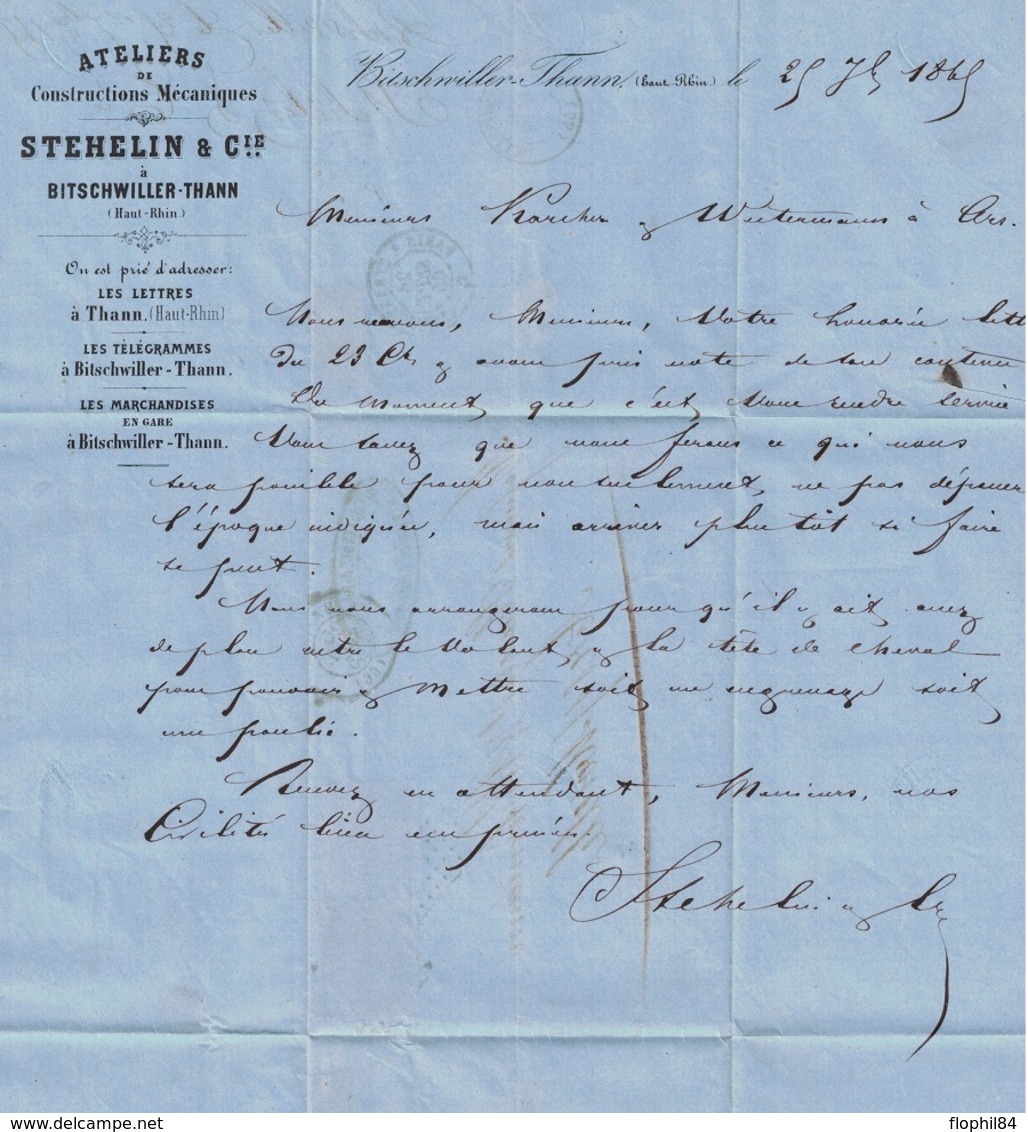 ATELIERS
DE
Constructions Mécaniques
STEHELIN & CIE
à
BITSCHWILLER-THANN
(Haut-Rhin)
On est prié d'adresser:
LES LETTRES
à Thann, (Haut-Rhin)
LES TÉLÉGRAMMES
à Bitschwiller-Thann.
LES MARCHANDISES
EN GARE
à Bitschwiller-Thann.
Bitschwiller-Thann, (Haut Rhin) le 25 1865
Messieurs Karcher & Westermann à Ars.
Nous recevons, Messieurs, Votre honorée lett
du 23 Ct & avons pris note de son contenu
Du moment que c'est Vous rendre service
Vous savez que nous ferons ce qui nous
sera possible pour non seulement, ne pas dépasser
l'époque indiquée, mais arriver plutôt si faire
se peut.
Nous nous arrangerons pour qu'il y ait assez
de place entre le Volant & la tête de cheval
pour pouvoir y mettre soit un engrenage soit
une poulie.
Recevez en attendant, Messieurs, nos
Civilités bien empressées.
Stehelin & Cie
flophil84